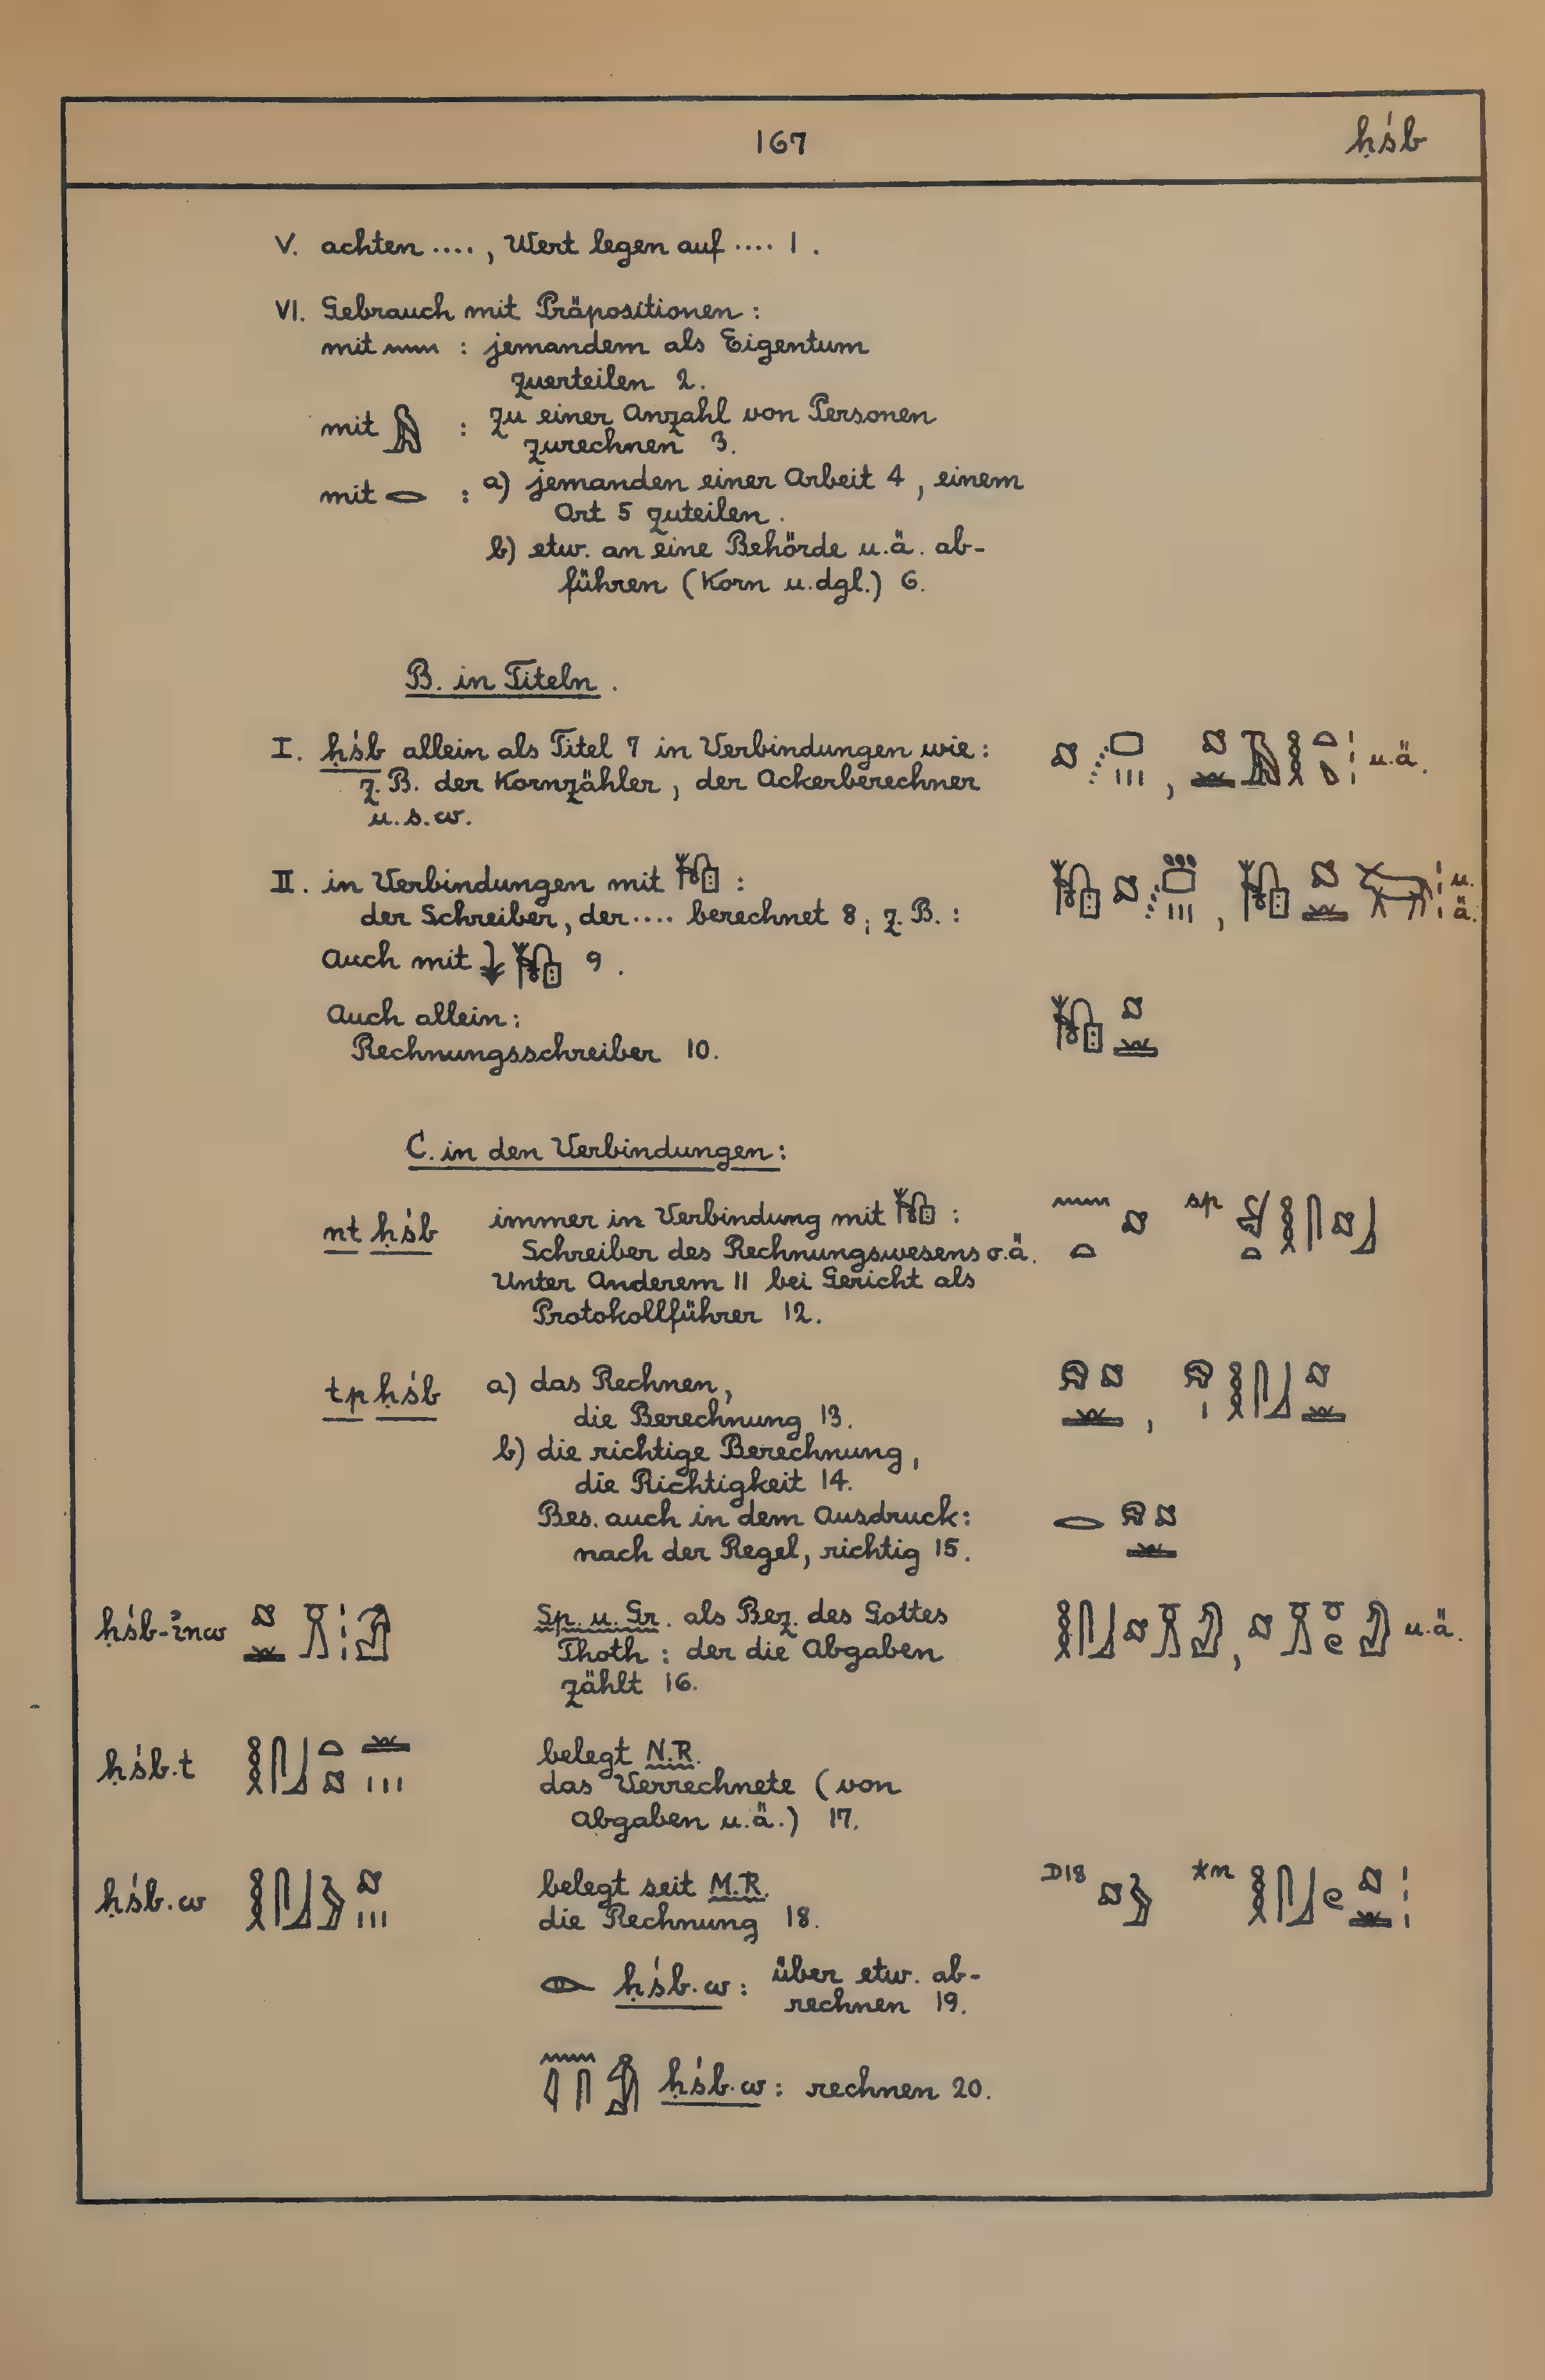 167 ḥśb
V. achten ...., Wert legen auf .... 1.
VI. Gebrauch mit Präpositionen:
mit 𓈖 : jemandem als Eigentum
zuerteilen 2.
mit 𓅓 : zu einer Anzahl von Personen
zurechnen 3.
mit 𓂋 : a) jemanden einer Arbeit 4, einem
Ort 5 zuteilen.
b) etw. an eine Behörde u.ä. ab-
führen (Korn u.dgl.) 6.
B. in Titeln.
I. ḥśb allein als Titel 7 in Verbindungen wie:
z.B. der Kornzähler, der Ackerberechner u.ä.
u.s.w.
II. in Verbindungen mit 𓏞 :
der Schreiber, der .... berechnet 8; z.B.: u.ä.
Auch mit 𓇓𓏞 9.
Auch allein:
Rechnungsschreiber 10.
C. in den Verbindungen:
nt ḥśb immer in Verbindung mit 𓏞 : sp
Schreiber des Rechnungswesens o.ä.
Unter Anderem 11 bei Gericht als
Protokollführer 12.
tp ḥśb a) das Rechnen,
die Berechnung 13.
b) die richtige Berechnung,
die Richtigkeit 14.
Bes. auch in dem Ausdruck:
nach der Regel, richtig 15.
ḥśb-ı͗nw Sp. u. Gr. als Bez. des Gottes u.ä.
Thoth: der die Abgaben
zählt 16.
ḥśb.t belegt N.R.
das Verrechnete (von
Abgaben u.ä.) 17.
ḥśb.w belegt seit M.R. D18 *n
die Rechnung 18.
𓁹 ḥśb.w: über etw. ab-
rechnen 19.
ḥśb.w: rechnen 20.